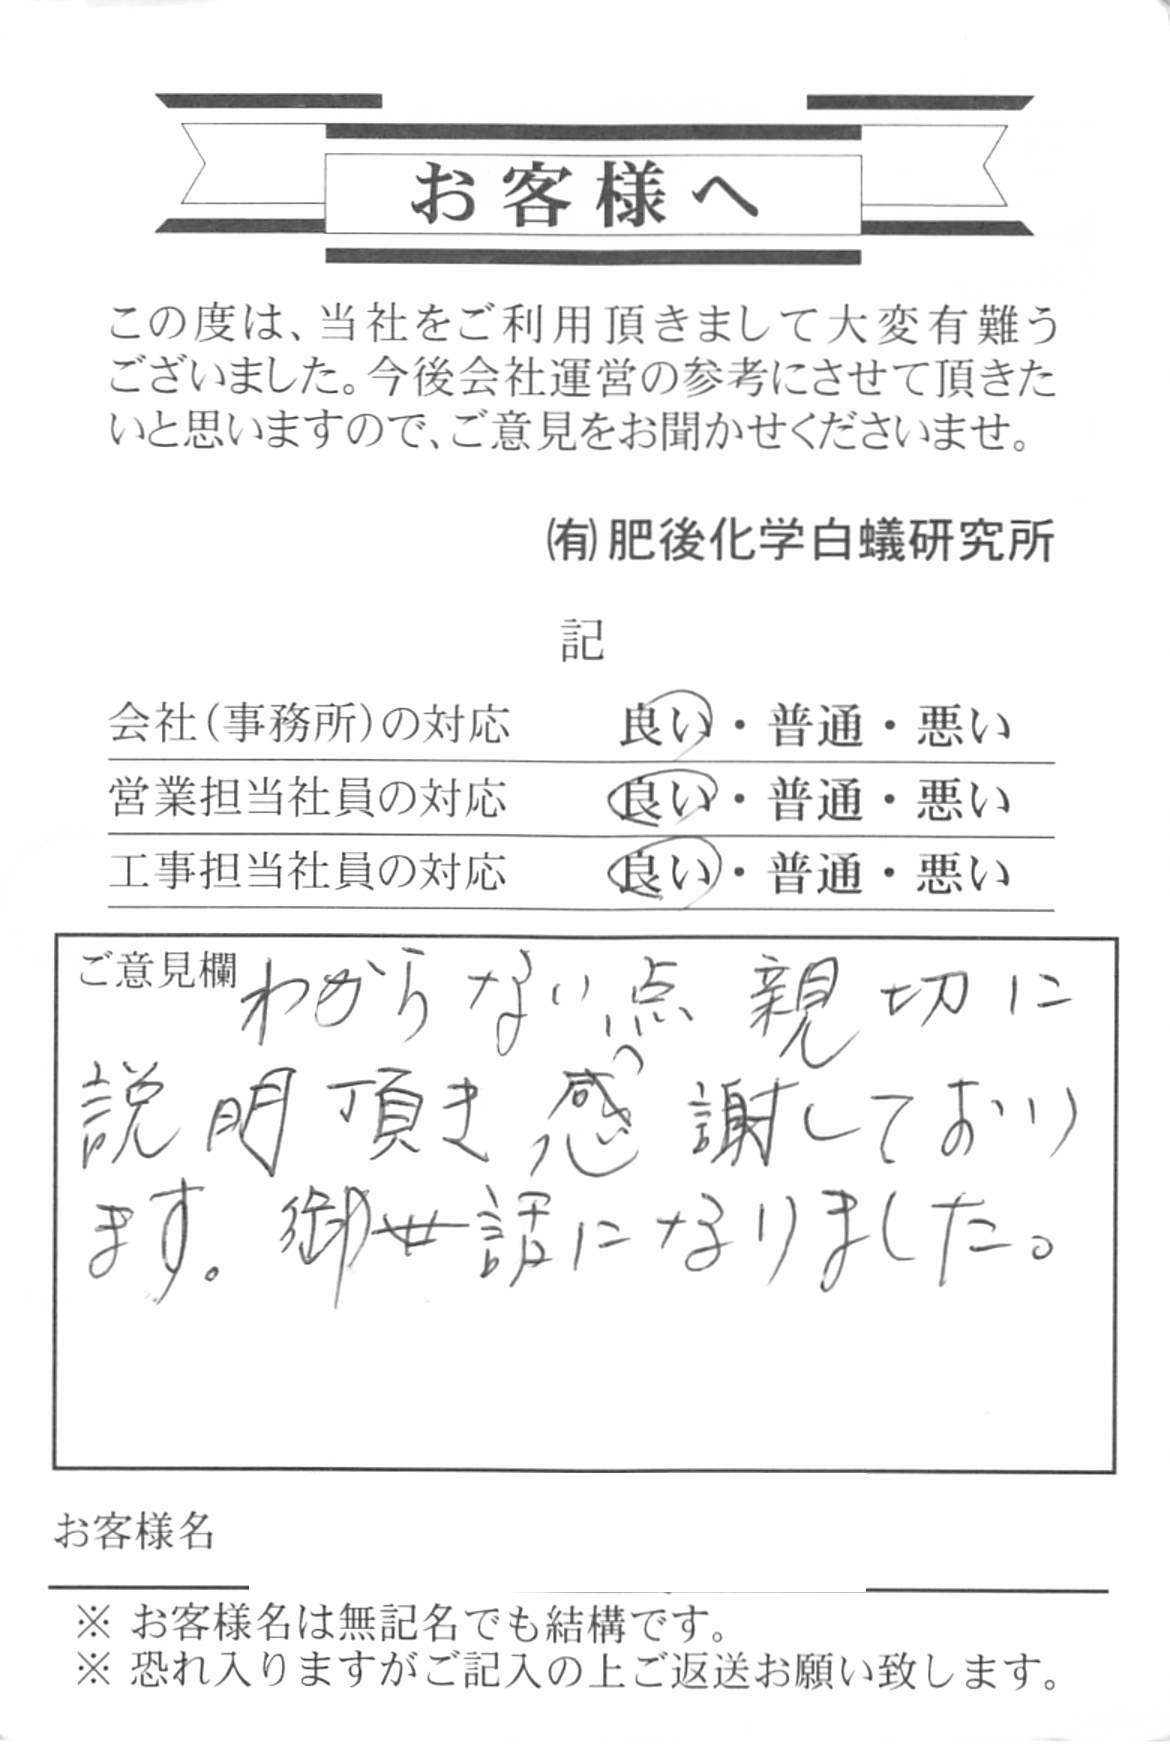 お客様へ
この度は、当社をご利用頂きまして大変有難う
ございました。今後会社運営の参考にさせて頂きた
いと思いますので、ご意見をお聞かせくださいませ。
㈲肥後化学白蟻研究所
記
会社(事務所)の対応 良い・普通・悪い
営業担当社員の対応 良い・普通・悪い
工事担当社員の対応 良い・普通・悪い
ご意見欄 わからない点 親切に
説明頂き 感謝しており
ます。御世話になりました。
お客様名
※ お客様名は無記名でも結構です。
※ 恐れ入りますがご記入の上ご返送お願い致します。